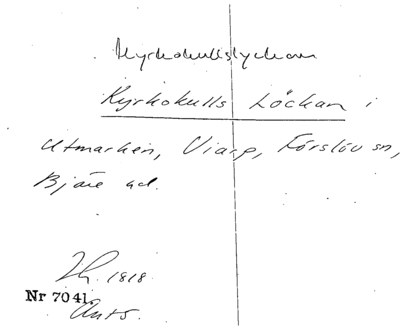 Kyrkokullslyckan
Kyrkokulls Löckan i
Utmarken, Viarp, Förslöv sn,
Bjäre hd.
1818
Nr 7041.